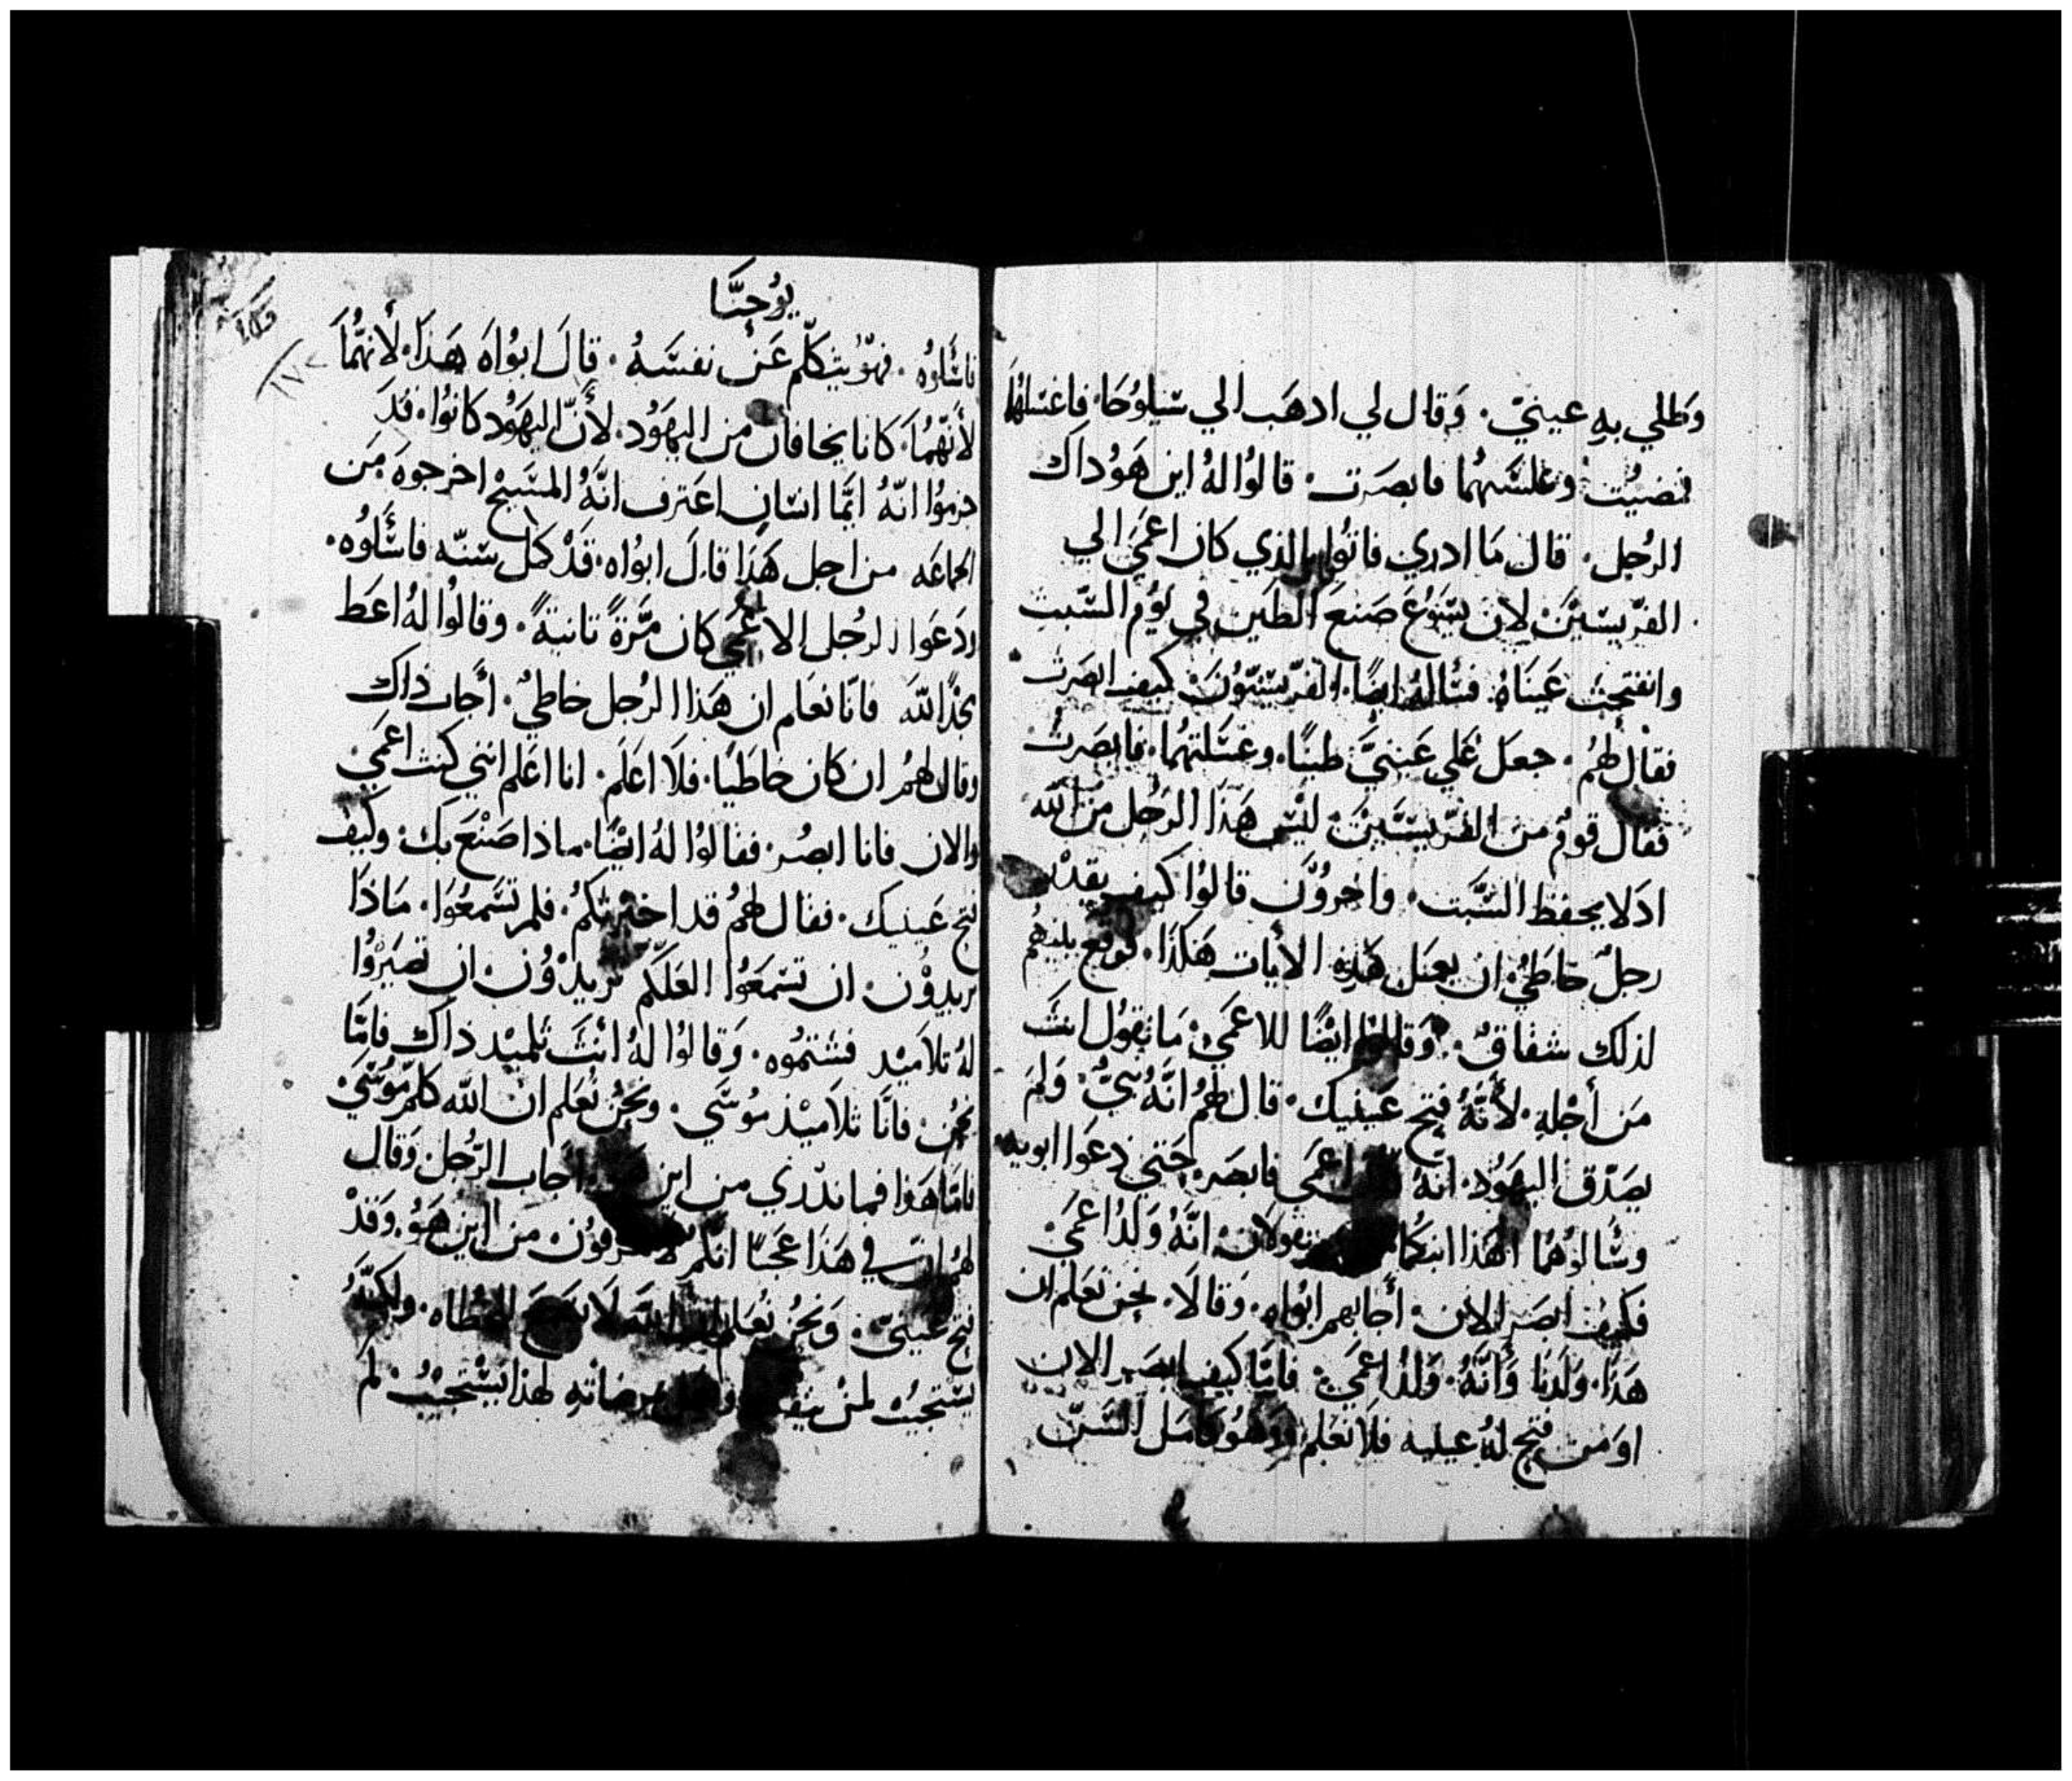 وَطلي بهِ عينيّ. وَقال لي ادهَب الي سَيلوُحَا. فاغتسَلهُما
فمضيُت وغلسَتهُما فابصَرت. قالوُا لهُ اين هَوُ داك
الرُجل. قال مَا ادري فاتوُا بالذي كان اعمَي الي
الفرّيسَييَن لان يسَوُعَ صَنعَ الطَين في يَوُم السَّبت
وانفتحِت عَينَاهُ. فسَالهُ ايضًا. الفرّيسَيّوُن. كيف ابصَرت
فقال لهُم. جعَل عَلي عَينيَّ طينًا. وغسَلتهُما. فابصَرتُ
فقال قومُ من الفرّيسَييَن. ليسَ هَذا الرَجُل من الله
ادَلا يحفظ السَّبت. واخروُن قالوُا كيف يقدْر
رجلُ خاطيُ. ان يعمَل هَذِه الأيات هَكذا. فوقع بينهُم
لذلك شفاقُ. وَقالوُا ايضًا للاعمَي. مَا تقوُل انتَ
مَن أجْلهِ. لأنَّهُ فتح عَينيك. قال لهُم انَّهُ نبيُّ. وَلمَ
يصَدّق اليهَوُد. انهُ اعمَي فابصَر. حَتي دعَوا ابويه
وسَالوُهُمَا اهَذا ابنكمَا تقولان. انَّهُ وَلدُ اعمَيَ
فكيف ابصَر الان. أجابهم ابوَاه. وَقالَا. نحن نعَلم ان
هَذا. وَلَدنَا وَأنَّهُ. وَلدُ اعمَيَ. فامَّا كيف ابصَر الان
اوَمن فتح لهُ عينيه فلَا نعَلم وَهوُ كامَل السَنّ
يوُحنَّا
فاسَّالوُه. فهَوُ يتكلّم عَن نفسَهُ. قالَ ابوُاهَ هَذا. لأنهُمَا
لأنهُمَا. كانا يخافان من اليهَوُد. لأنَّ اليهَوُد كانوُا. قدَ
جزموُا انّهُ ايمَّا انسَان اعتَرف انَّهُ المسَيحُ اخرجوهَ مَن
الجماعَه من اجل هَذا قالَ ابوُاه. قدْ كمل سَنّه فاسَّالوُه.
ودَعَوا الرجُل الاعمَي كان مرَّةً تانيَةً. وقالوُا لهُ اعَط
مجْدًا للهَ فانّا نعَلم ان هَذا الرُجل خاطيُ. أجَاب ذاك
وقال لهُمُ ان كان خاطَيًا. فلَا اعَلَم. انا اعَلم انني كنت اعمَيَ.
والان فانا ابصُر. فقالوُا لهُ ايضًا. ماذا صَنعَ بَك. وكيف
فتح عَينيك. فقال لهُمُ قد اخبرتكمُ. فلم تسَّمعُوا. مَاذَا
تريدوُن. ان تسَمَعَوُا العَلَكمَ تريدْوُن. ان تصَيَروُا
لهُ تلاَميْد فشتموُه. وَقالوُا لهُ انتَ تلميْد ذاك فامَّا
نحُن. فانَّا تلاَميْذ موُسَّي. ونَحُن نُعَلم ان الله كلمَ موُسَّيَ
فامَّا هَذا فما ندّري من اين اجَاب الرّجُل. وَقال
لهُم ان في هَذا عَجَبًا انكمُ لا تعرفوُن. من اين هَوُ. وَقدْ
فتح عَينيّ. وَنحُن نُعَلم ان اللهَ لَا يسمع الخطاه. ولكنَّهُ
يسَتجيبُ لمنْ يتقيه ويعمل مرضَاتهِ لهذا يسَتجيُب. لمَ